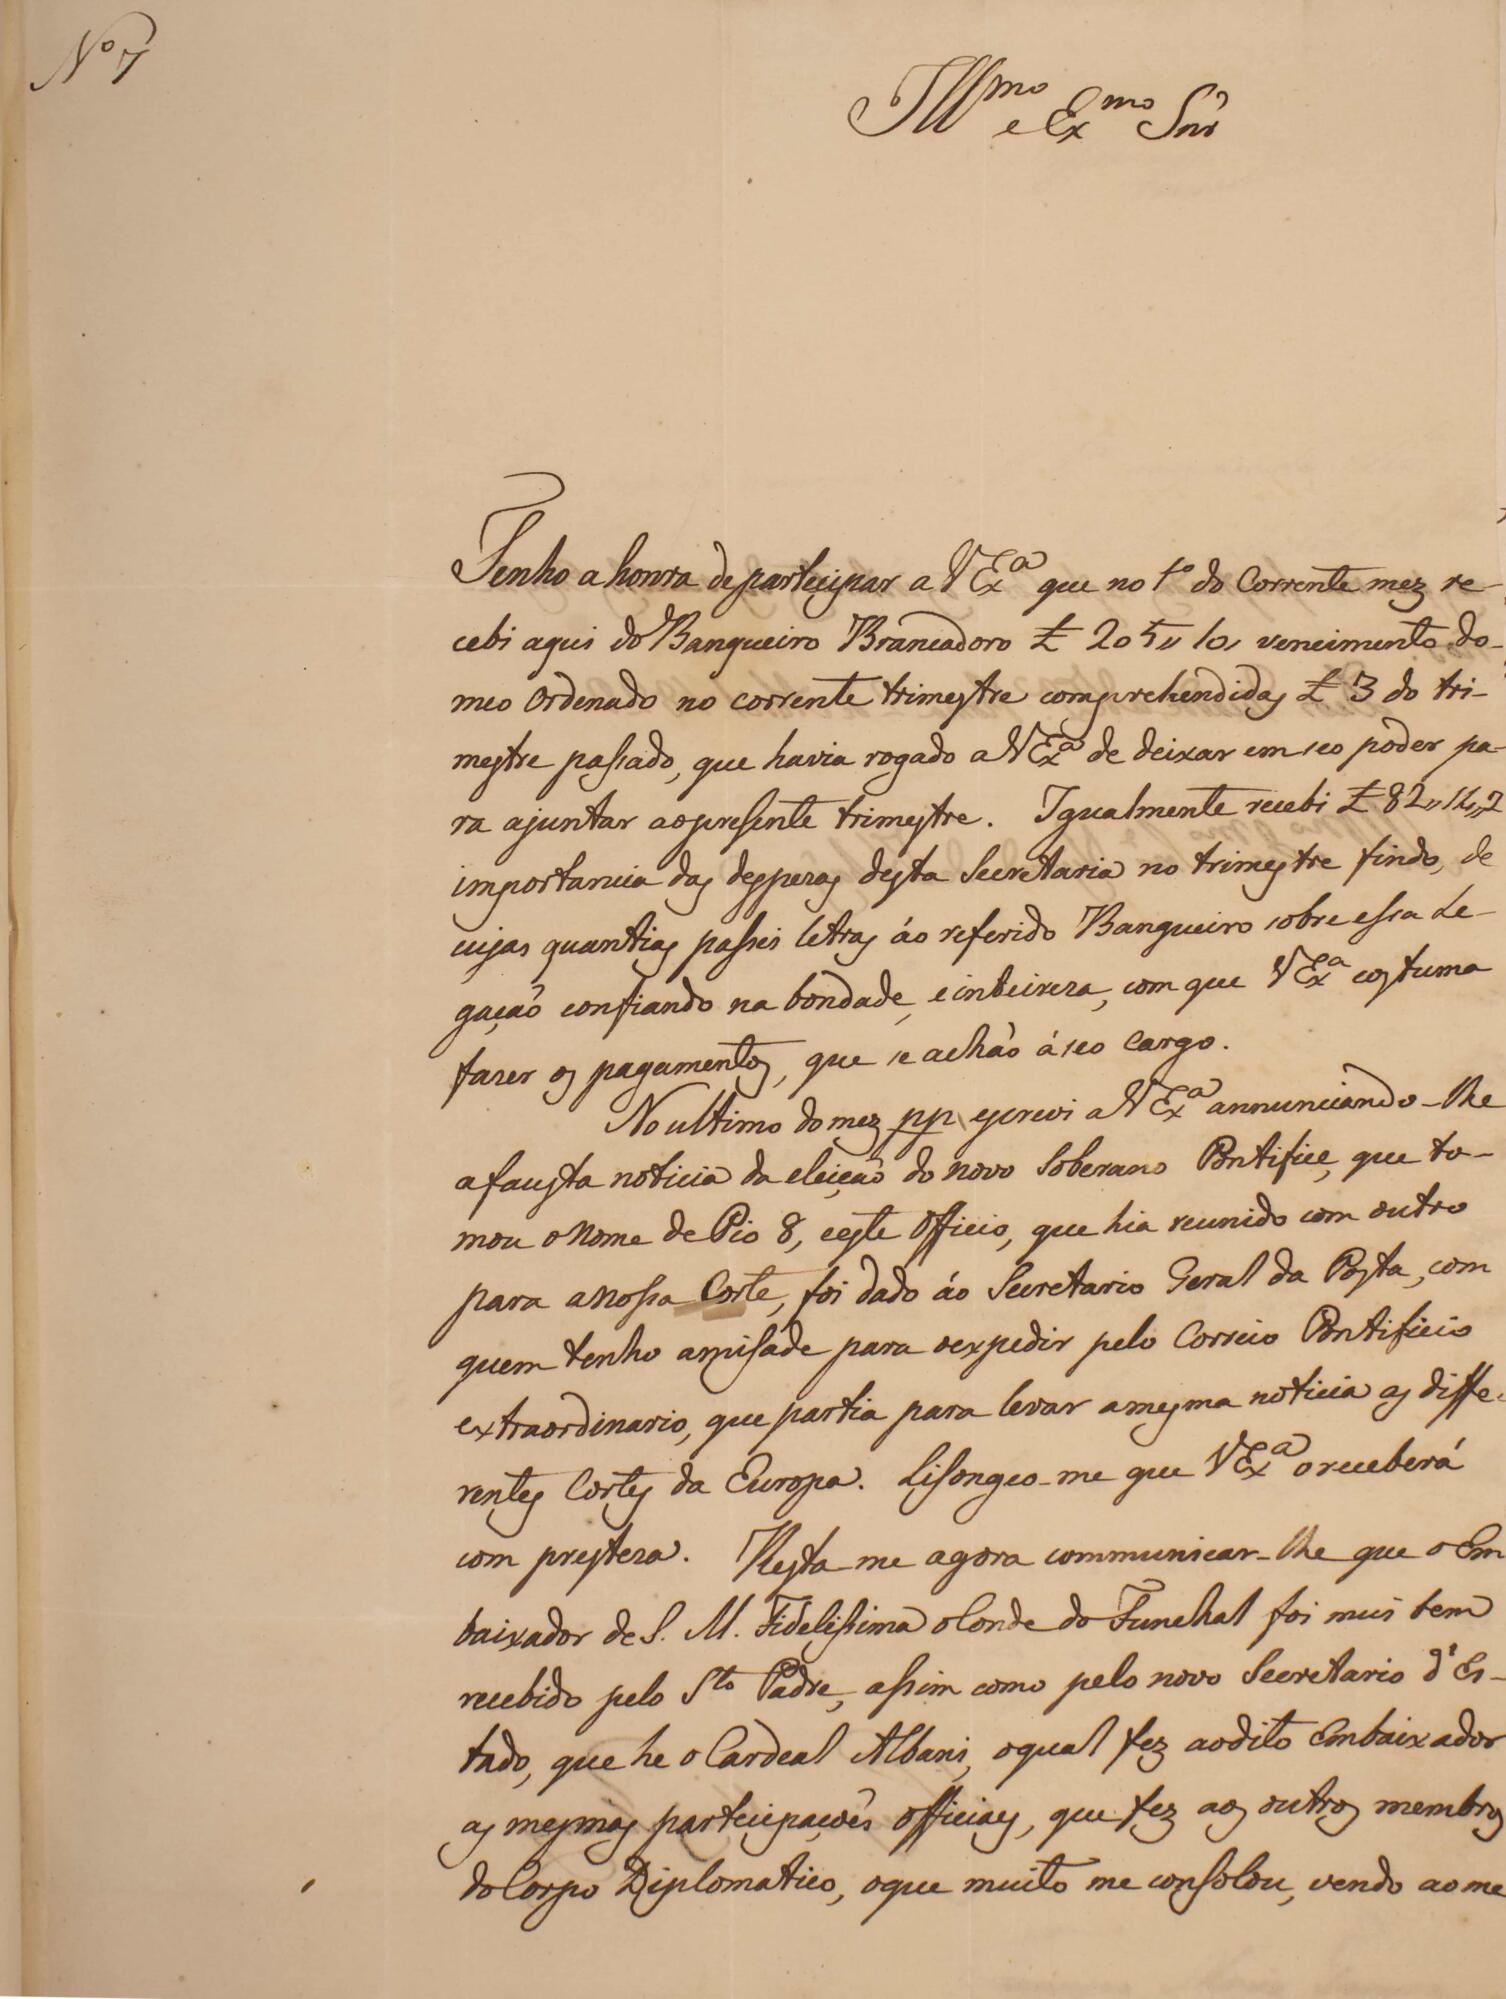 Nº 7
Illmo e Exmo Snr
Tenho a honra de partecipar a VExa que no 1º do Corrente mez re-
cebi aqui do Banqueiro Brancadoro £ 205,, 10, vencimento do
meo Ordenado no corrente trimestre comprehendidas £ 3 do tri-
mestre passado, que havia rogado a VExa de deixar em seo poder pa-
ra ajuntar ao presente trimestre. Igualmente recebi £ 82,,
importancia das despezas desta Secretaria no trimestre findo, de
cujas quantias passei letras áo referido Banqueiro sobre essa Le-
gação confiando na bondade, e inteireza, com que VExa costuma
fazer os pagamentos, que se achão á seo cargo.
No ultimo do mez pp escrevi a VExa annunciando-lhe
a fausta noticia da eleição do novo Soberano Pontifice, que to-
mou o Nome de Pio 8, e este Officio, que hia reunido com outro
para a Nossa Corte, foi dado áo Secretario Geral da Posta, com
quem tenho amisade para o expedir pelo Correio Pontificio
extraordinario, que partia para levar a mesma noticia as diffe-
rentes Cortes da Europa. Lisongeo-me que VExa o receberá
com presteza. Resta me agora communicar-lhe que o Em
baixador de S. M. Fidelissima o Conde do Funchal foi mui bem
recebido pelo Sto Padre, assim como pelo novo Secretario d'Es-
tado, que he o Cardeal Albani, o qual fez ao dito Embaixador
as mesmas partecipações officiaes, que fez aos outros membros
do Corpo Diplomatico, o que muito me consolou, vendo ao me